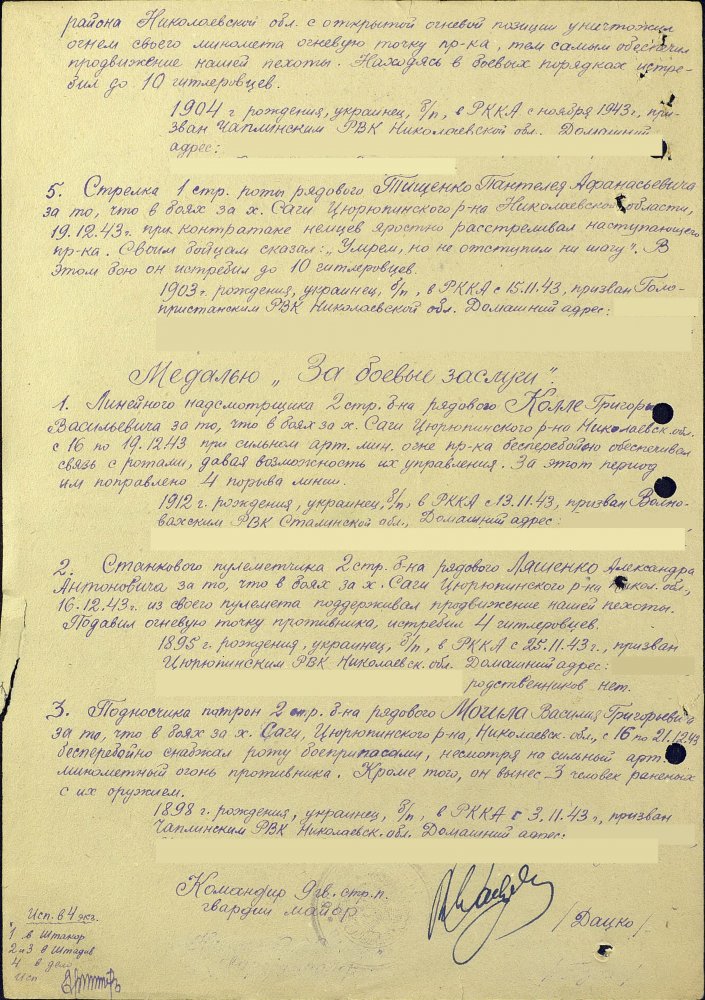 района Николаевской обл. с открытой огневой позиции уничтожил
огнем своего миномета огневую точку пр-ка, тем самым обеспечил
продвижение нашей пехоты. Находясь в боевых порядках истре-
бил до 10 гитлеровцев.
1904 г рождения, украинец, б/п, в РККА с ноября 1943 г, при-
зван Чаплинским РВК Николаевской обл. Домашний
адрес:
5. Стрелка 1 стр. роты рядового Тищенко Пантелея Афанасьевича
за то, что в боях за х. Саги Цюрюпинского р-на Николаевской области,
19.12.43г. при контратаке немцев яростно расстреливал наступающего
пр-ка. Своим бойцам сказал: „Умрем, но не отступим ни шагу". В
этом бою он истребил до 10 гитлеровцев.
1903 г. рождения, украинец, б/п, в РККА с 15.11.43, призван Голо-
пристанским РВК Николаевской обл. Домашний адрес:
Медалью „За боевые заслуги".
1. Линейного надсмотрщика 2 стр. б-на рядового Колле Григория
Васильевича за то, что в боях за х. Саги Цюрюпинского р-на Николаевск. обл.
с 16 по 19.12.43 при сильном арт. мин. огне пр-ка бесперебойно обеспечивал
связь с ротами, давая возможность их управления. За этот период
им поправлено 4 порыва линии.
1912 г. рождения, украинец, б/п, в РККА с 13.11.43, призван Волно-
вахским РВК Сталинской обл., Домашний адрес:
2. Станкового пулеметчика 2 стр. б-на рядового Ляшенко Александра
Антоновича за то, что в боях за х. Саги Цюрюпинского р-на Никол. обл.,
16.12.43г. из своего пулемета поддерживал продвижение нашей пехоты.
Подавил огневую точку противника, истребил 4 гитлеровцев.
1895 г. рождения, украинец, б/п, в РККА с 25.11.43 г., призван
Цюрюпинским РВК Николаевск. обл. Домашний адрес:
родственников нет.
3. Подносчика патрон 2 стр. б-на рядового Могила Василия Григорьевича
за то, что в боях за х. Саги, Цюрюпинского р-на, Николаевск. обл., с 16 по 21.12.43
бесперебойно снабжал роту боеприпасами, несмотря на сильный арт.
минометный огонь противника. Кроме того, он вынес 3 человек раненых
с их оружием.
1898 г. рождения, украинец, б/п, в РККА с 3.11.43 г., призван
Чаплинским РВК Николаевск. обл. Домашний адрес:
Командир 9 гв. стр. п.
гвардии майор
/Дацко/
Исп. в 4 экз.
1 в Штакор
2 и 3 в Штадив
4 в дело
Исп